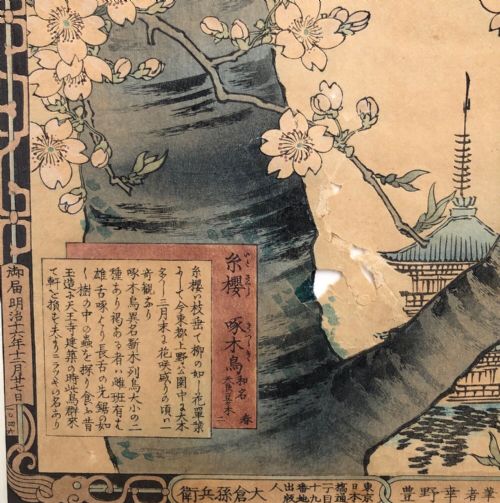 糸櫻
いとさくら
啄木鳥
きつつき
和名
春
糸櫻ハ枝垂て柳の如し花單葉
にして今東都上野公園中に大木
多し三月末花咲盛りの頃ハ一
奇観なり
啄木鳥異名斲木列鳥大小の二
種あり褐ある者ハ雌斑有も
雄舌啄より長舌の先鋸の如
し樹の中の蟲を探り食ふ昔
玉造に天王寺建築の時此鳥群来
て軒を損
の名あり
御届明治十六年十二月廿七日
者幸野豊
東京
日本橋通
一丁目
十九番地
出版人
大倉孫兵衛